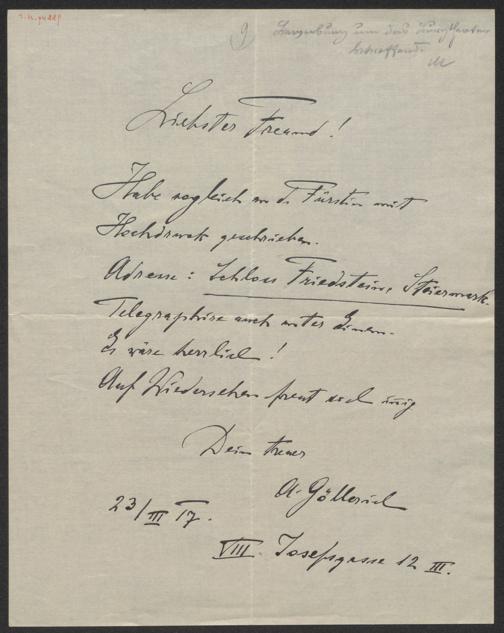 9
Bewerbung um das
betreffend.
Liebster Freund!
Habe sogleich an d. Fürstin mit
Hochdruck geschrieben.
Adresse: Schloss Friedstein, Steiermark.
Telegraphire auch unter Einem.
Es wäre herrlich!
Auf Wiedersehen freut sich innig
Dein treuer
A. Göllerich
23/III 17.
VIII. Josefsgasse 12 III.